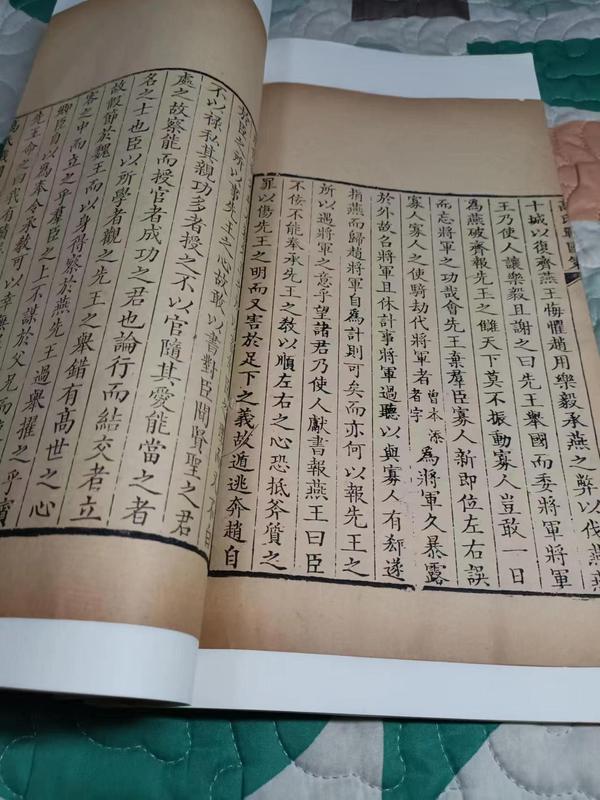 高氏戰國策
十城以復齊燕王悔懼趙用樂毅承燕之弊以伐燕燕
王乃使人讓樂毅且謝之曰先王舉國而委將軍將軍
為燕破齊報先王之讎天下莫不振動寡人豈敢一日
而忘將軍之功哉會先王棄羣臣寡人新即位左右誤
寡人寡人之使騎劫代將軍者曾本添者字為將軍久暴露
於外故召將軍且休計事將軍過聽以與寡人有郄遂
捐燕而歸趙將軍自為計則可矣而亦何以報先王之
所以遇將軍之意乎望諸君乃使人獻書報燕王曰臣
不佞不能奉承先王之教以順左右之心恐抵斧質之
罪以傷先王之明而又害於足下之義故遁逃奔趙自
於臣之所以事先王之心故敢以書對臣聞賢聖之君
不以祿私其親功多者授之不以官隨其愛能當之者
處之故察能而授官者成功之君也論行而結交者立
名之士也臣以所學者觀之先王之舉錯有高世之心
故假節於魏王而以身得察於燕先王過舉擢之乎賓
客之中而立之乎羣臣之上不謀於父兄而
卿臣自以為奉令承教可以幸無
先王命之曰我有